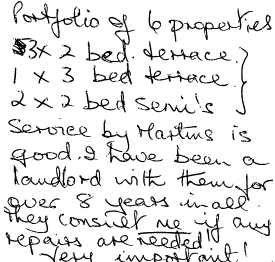 Portfolio of 6 properties
3 x 2 bed. terrace.
1 x 3 bed terrace.
2 x 2 bed semi's
Service by Martins is
good. I have been a
landlord with them for
over 8 years in all.
They consult me if any
repairs are needed!
Very important!